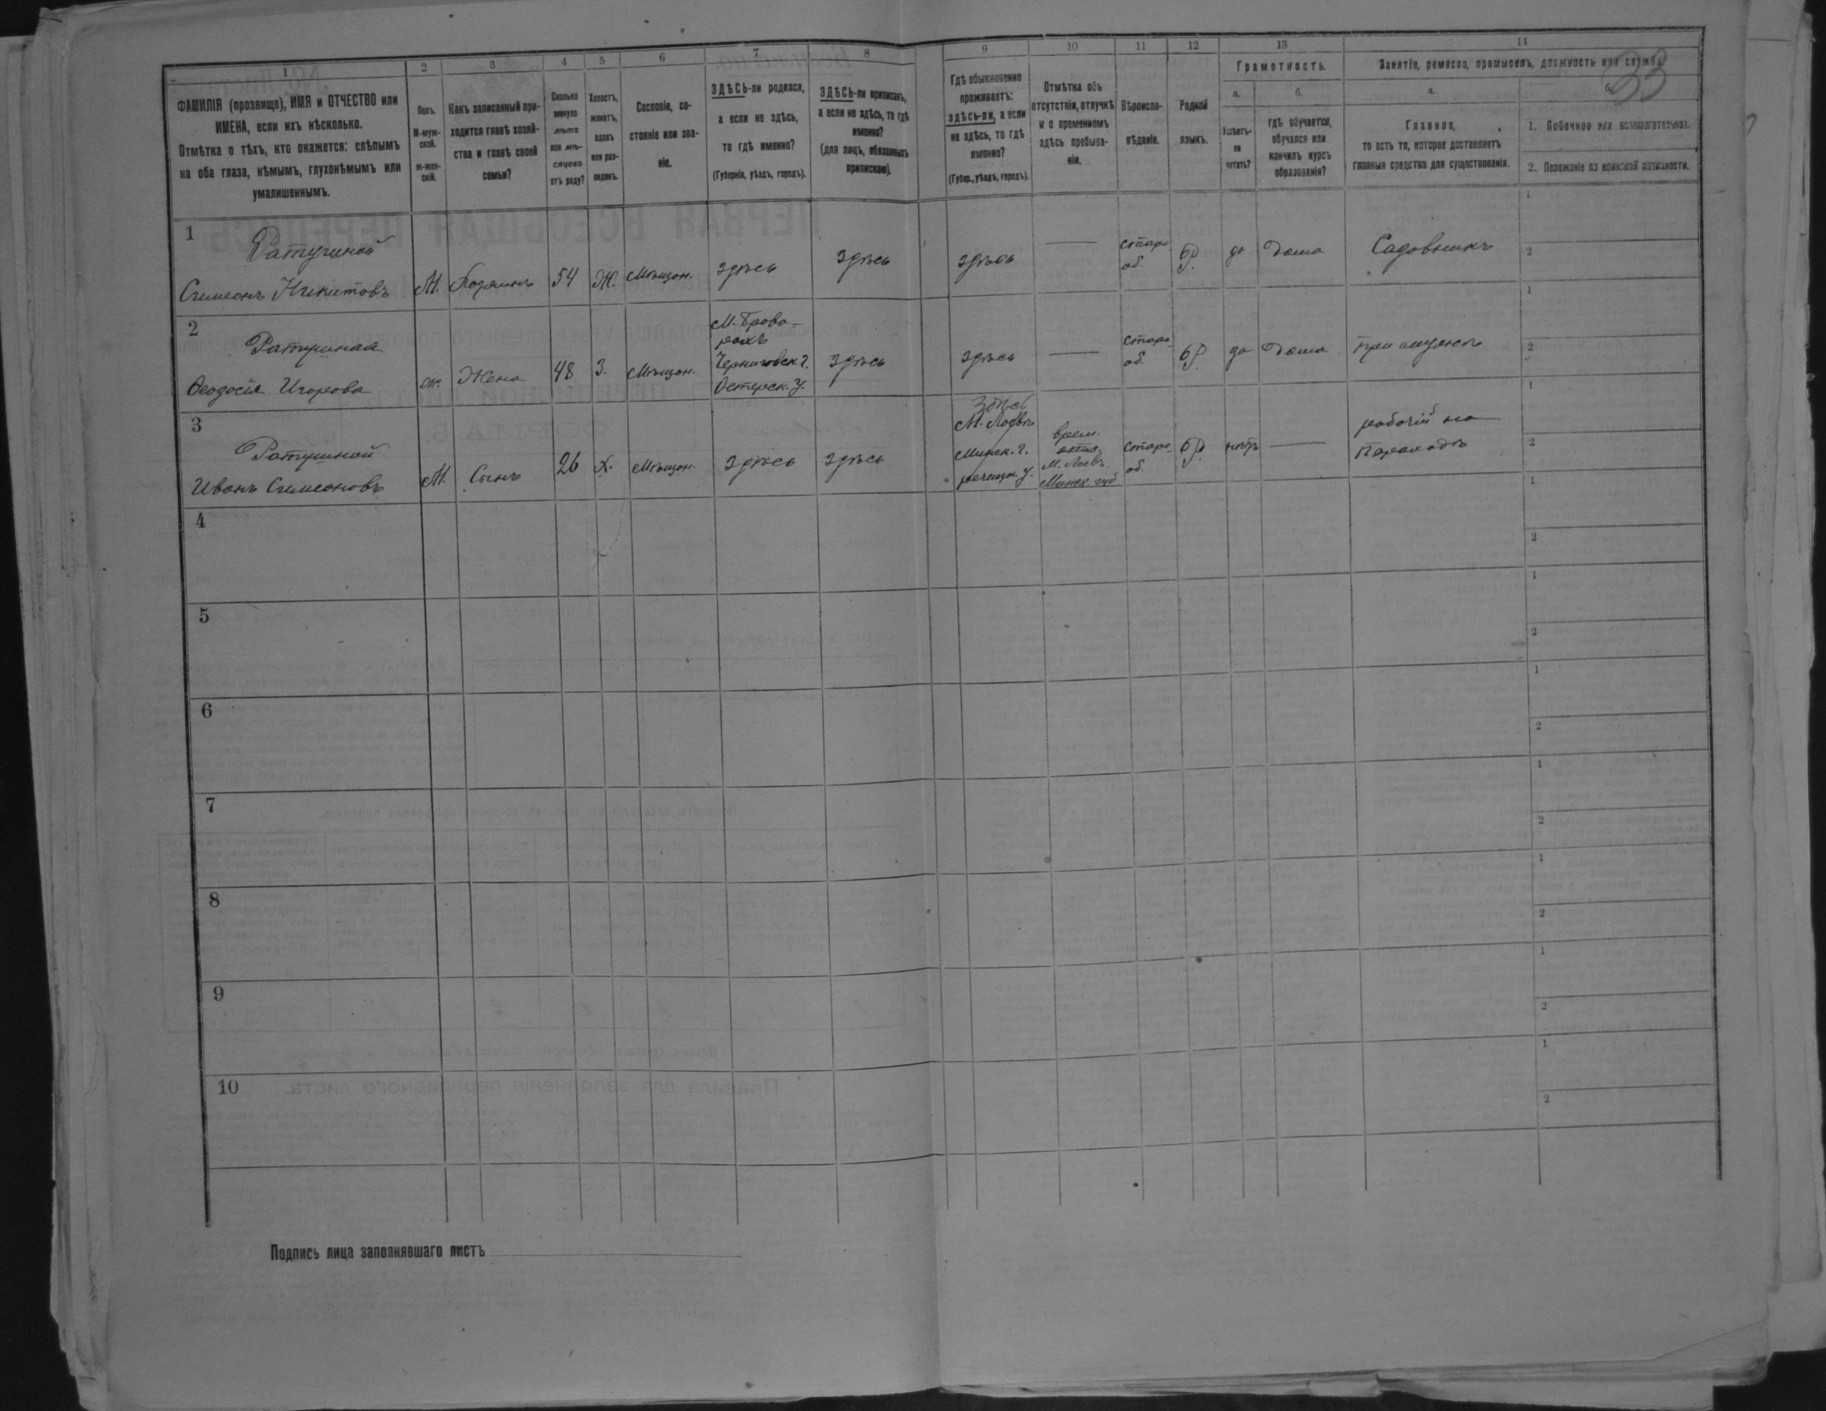 33
1
2
3
4
5
6
7
8
9
10
11
12
13
14
ФАМИЛІЯ (прозвище), ИМЯ и ОТЧЕСТВО или
ИМЕНА, если ихъ нѣсколько.
Отмѣтка о тѣхъ, кто окажется: слѣпымъ
на оба глаза, нѣмымъ, глухонѣмымъ или
умалишеннымъ.
Полъ.
М-муж-
ской.
Ж-жен-
скій.
Какъ записанный при-
ходится главѣ хозяй-
ства и главѣ своей
семьи?
Сколько
минуло
лѣтъ
или мѣ-
сяцевъ
отъ роду?
Холостъ,
женатъ,
вдовъ
или раз-
веденъ.
Сословіе, со-
стояніе или зва-
ніе.
ЗДѢСЬ-ли родился,
а если не здѣсь,
то гдѣ именно?
(Губернія, уѣздъ, городъ).
ЗДѢСЬ-ли приписанъ,
а если не здѣсь, то гдѣ
именно?
(для лицъ, обязанныхъ
припискою).
Гдѣ обыкновенно
проживаетъ:
здѣсь-ли, а если
не здѣсь, то гдѣ
именно?
(Губер., уѣздъ, городъ).
Отмѣтка объ
отсутствіи, отлучкѣ
и о временномъ
здѣсь пребыва-
ніи.
Вѣроиспо-
вѣданіе.
Родной
языкъ.
Грамотность.
а.
Умѣетъ-
ли
читать?
б.
гдѣ обучается,
обучался или
кончилъ курсъ
образованія?
Занятія, ремесло, промыселъ, должность или служба.
а.
Главное,
то есть то, которое доставляетъ
главныя средства для существованія.
1. Побочное или вспомогательное.
2. Положеніе по воинской повинности.
1
Ратушной
Симеонъ Никитовъ
М.
Хозяинъ
54
Ж.
Мѣщан.
здѣсь
здѣсь
здѣсь
—
старо
об.
бр.
да
Дома
Садовникъ
1
2
2
Ратушная
Ѳеодосія Игорова
ж.
Жена
48
З.
Мѣщан.
М. Брова-
рахъ
Черниговск. г.
Остерск. у.
здѣсь
здѣсь
—
старо
об.
бр.
да
Дома
при мужѣ
1
2
3
Ратушной
Иванъ Симеоновъ
М.
Сынъ
26
Х.
Мѣщан.
здѣсь
здѣсь
здѣсь
М. Лоевѣ
Минск. г.
речицк. у.
врем.
М. Лоевъ
Минск. губ
старо
об.
бр
нѣтъ
—
рабочій на
Пароходѣ
1
2
4
1
2
5
1
2
6
1
2
7
1
2
8
1
2
9
1
2
10
1
2
Подпись лица заполнявшаго листъ